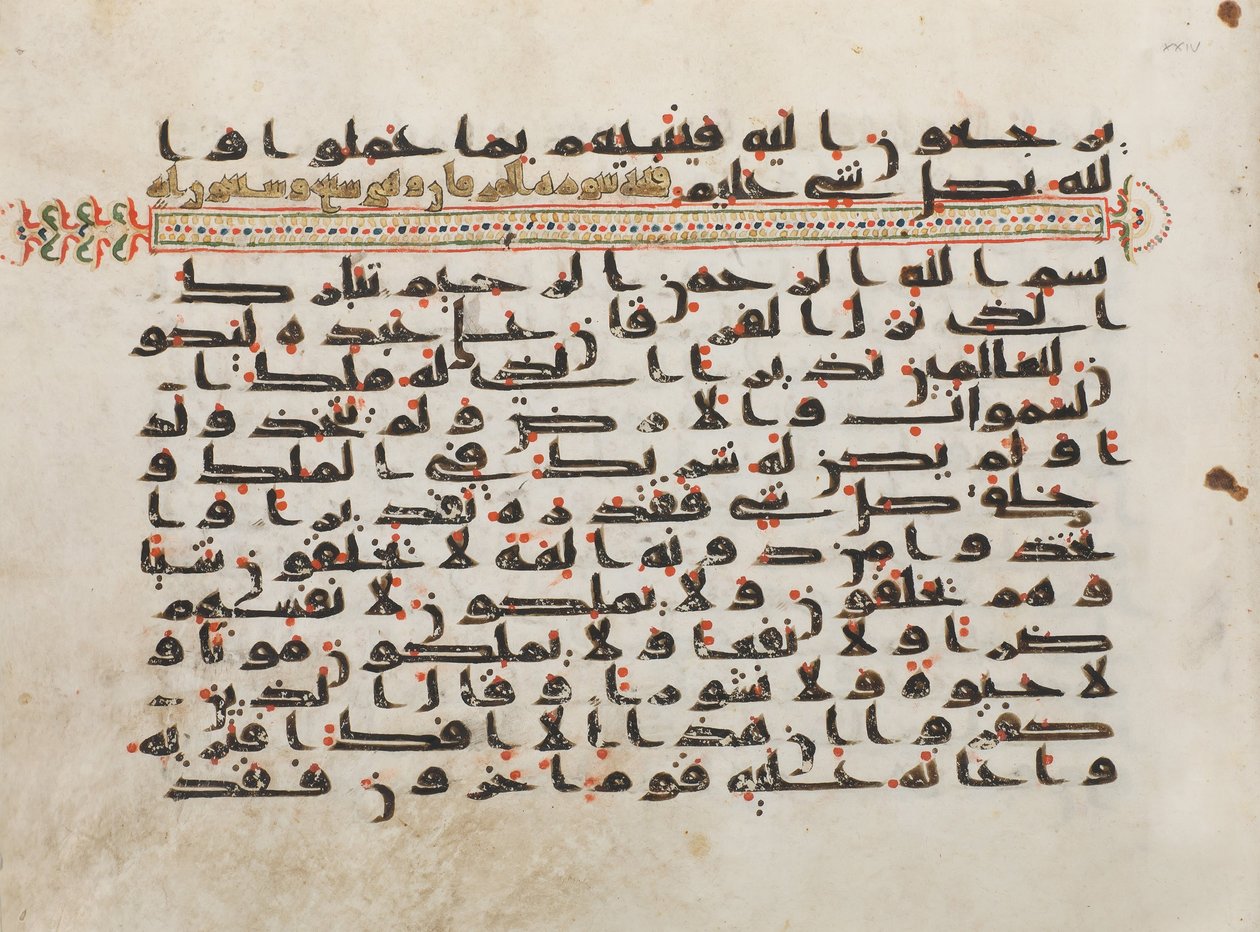 يرجعون اليه فينبيهم بما عملوا وا
لله بكل شي عليم
بسم الله الرحمن الرحيم تبرك
الذي نزل الفرقان على عبده ليكو
ن للعالمين نذيرا الذي له ملك ا
لسموات والارض ولم يتخذ ولد
ا ولم يكن له شريك في الملك و
خلق كل شي فقدره تقديرا وا
تخذوا من دونه الهة لا يخلقون شيا
وهم يخلقون ولا يملكون لانفسهم
ضرا ولا نفعا ولا يملكون موتا و
لا حيوة ولا نشورا وقال الذين
كفروا ان هذا الا افك افتريه
واعانه عليه قوم اخرون فقد